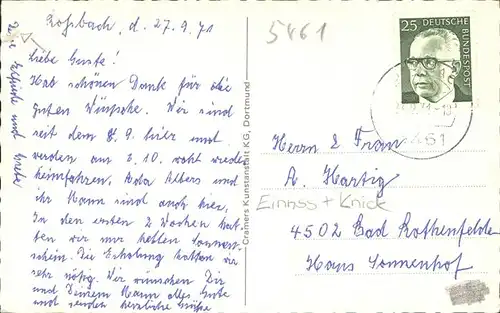 Roßbach, d. 27.9.71
Liebe Guste!
Hab schönen Dank für die
guten Wünsche. Wir sind
seit dem 8.9. hier und
werden am 2.10. wohl wieder
heimfahren. Ada Albers und
ihr Mann sind auch hier.
In den ersten 2 Wochen hat-
ten wir nur hellen Sonnen-
schein. Die Erholung hatten wir
sehr nötig. Wir wünschen Dir
und Deinem Mann alles Gute
und senden herzliche Grüße
und
Cramers Kunstanstalt KG, Dortmund
5461
25 DEUTSCHE
BUNDESPOST
5461
Herrn & Frau
A. Hartig
Einriss + Knick
4502 Bad Rothenfelde
Haus Sonnenhof